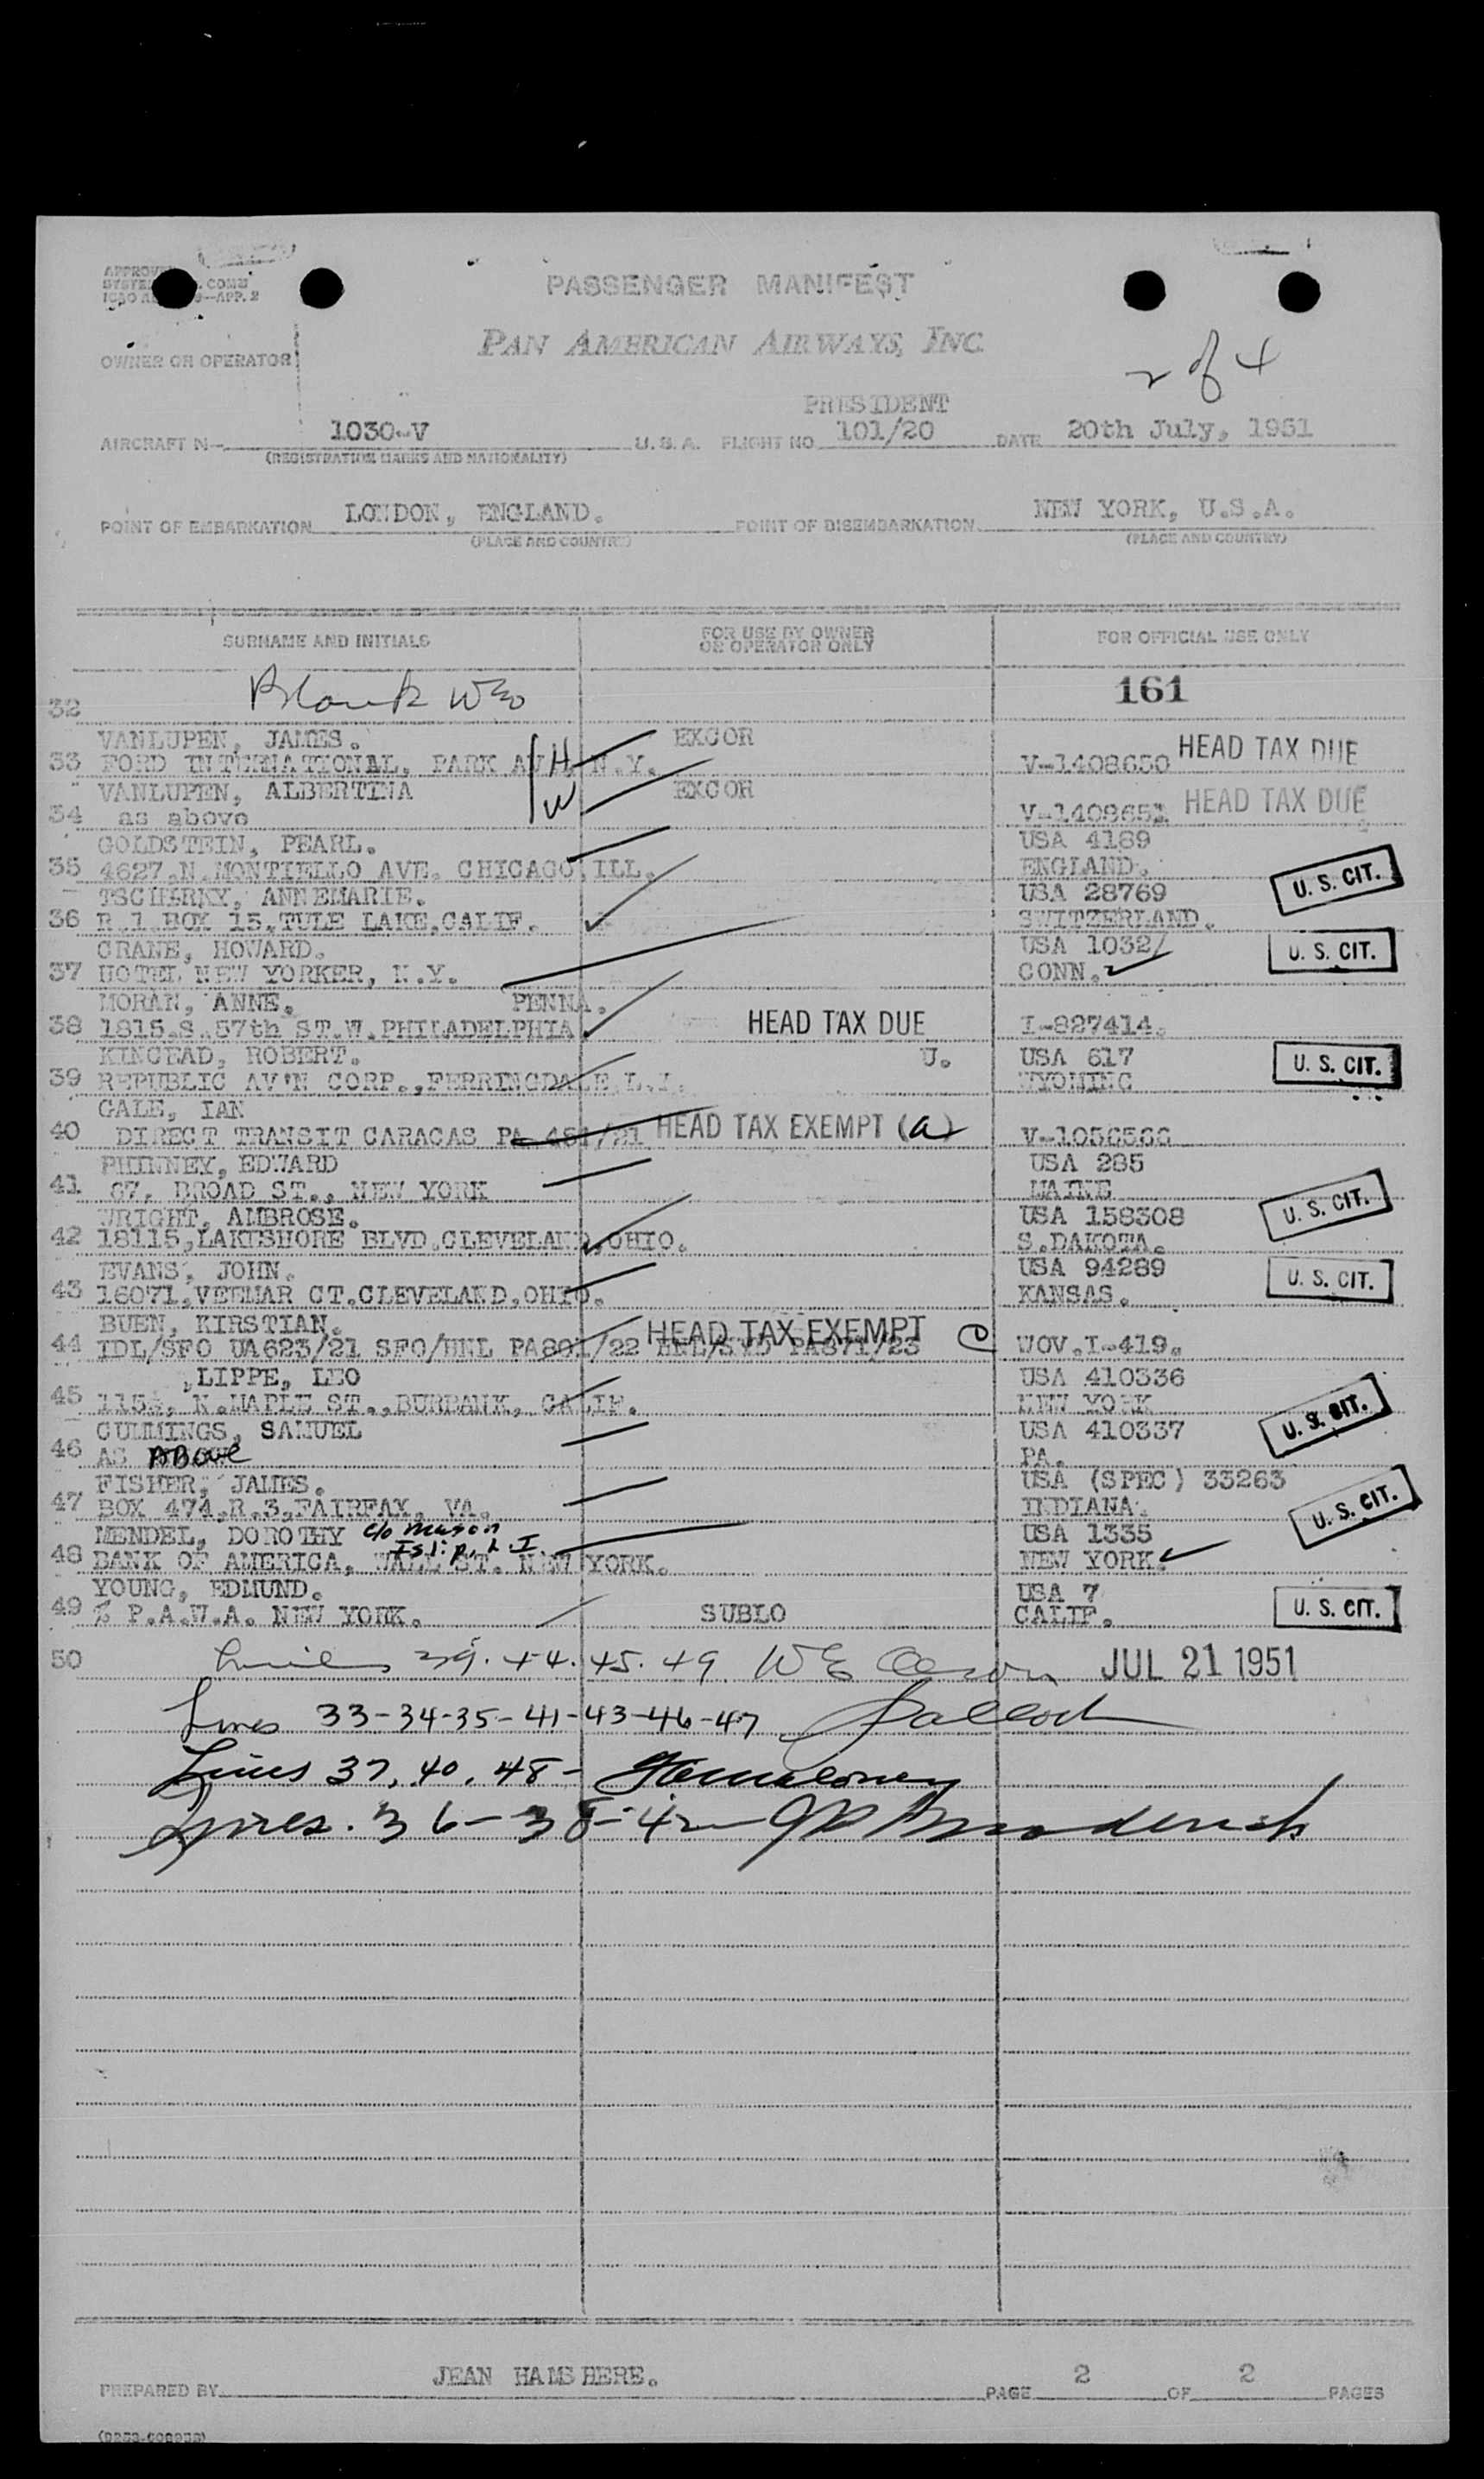 PASSENGER MANIFEST
PAN AMERICAN AIRWAYS, INC.
2 of 4
OWNER OR OPERATOR
PRESIDENT
AIRCRAFT N- 1030-V U.S.A. FLIGHT NO 101/20 DATE 20th July, 1951
(REGISTRATION MARKS AND NATIONALITY)
POINT OF EMBARKATION LONDON, ENGLAND. POINT OF DISEMBARKATION NEW YORK, U.S.A.
(PLACE AND COUNTRY) (PLACE AND COUNTRY)
SURNAME AND INITIALS FOR USE BY OWNER OR OPERATOR ONLY FOR OFFICIAL USE ONLY
32 Blank 161
VANLUPEN, JAMES. EXCOR HEAD TAX DUE
33 FORD INTERNATIONAL, PARK AV. H N.Y. V-1408650
VANLUPEN, ALBERTINA W EXCOR HEAD TAX DUE
34 as above V-1408651
GOLDSTEIN, PEARL. USA 4189
35 4627,N.MONTIELLO AVE. CHICAGO,ILL. ENGLAND. U. S. CIT.
TSCHIRKY, ANNEMARIE. USA 28769
36 R.1.BOX 15,TULE LAKE,CALIF. SWITZERLAND.
CRANE, HOWARD. USA 1032/ U. S. CIT.
37 HOTEL NEW YORKER, N.Y. CONN.
MORAN, ANNE. PENNA.
38 1815.S.57th ST.W.PHILADELPHIA HEAD TAX DUE I-827414.
KINCEAD, ROBERT. U. USA 617 U. S. CIT.
39 REPUBLIC AV'N CORP.,FERRINGDALE,L.I. WYOMING
GALE, IAN HEAD TAX EXEMPT (a)
40 DIRECT TRANSIT CARACAS PA 451/21 V-1056566
PHINNEY, EDWARD USA 285
41 67, BROAD ST., NEW YORK MAINE
WRIGHT, AMBROSE. USA 158308 U. S. CIT.
42 18115,LAKESHORE BLVD.CLEVELAND,OHIO. S.DAKOTA.
EVANS, JOHN. USA 94289 U. S. CIT.
43 16071,VEEMAR CT.CLEVELAND,OHIO. KANSAS.
BUEN, KIRSTIAN. HEAD TAX EXEMPT C
44 IDL/SFO UA623/21 SFO/HNL PA801/22 HNL/SYD PA871/23 NOV.I-419.
LIPPE, LEO USA 410336
45 N.MAPLE ST.,BURBANK, CALIF. NEW YORK
CUMMINGS, SAMUEL USA 410337 U. S. CIT.
46 AS Above PA.
FISHER, JAMES. USA (SPEC) 33263
47 BOX 474,R.3,FAIRFAX, VA. INDIANA. U. S. CIT.
MENDEL, DOROTHY c/o Mason Islip. L.I. USA 1335
48 BANK OF AMERICA, WALL ST. NEW YORK. NEW YORK.
YOUNG, EDMUND. USA 7
49 % P.A.W.A. NEW YORK. SUBLO CALIF. U. S. CIT.
50 Lines 39. 44. 45. 49 JUL 21 1951
Lines 33-34-35-41-43-46-47
Lines 37, 40, 48-
Lines. 36-38-42-
PREPARED BY JEAN HAMSHERE. PAGE 2 OF 2 PAGES